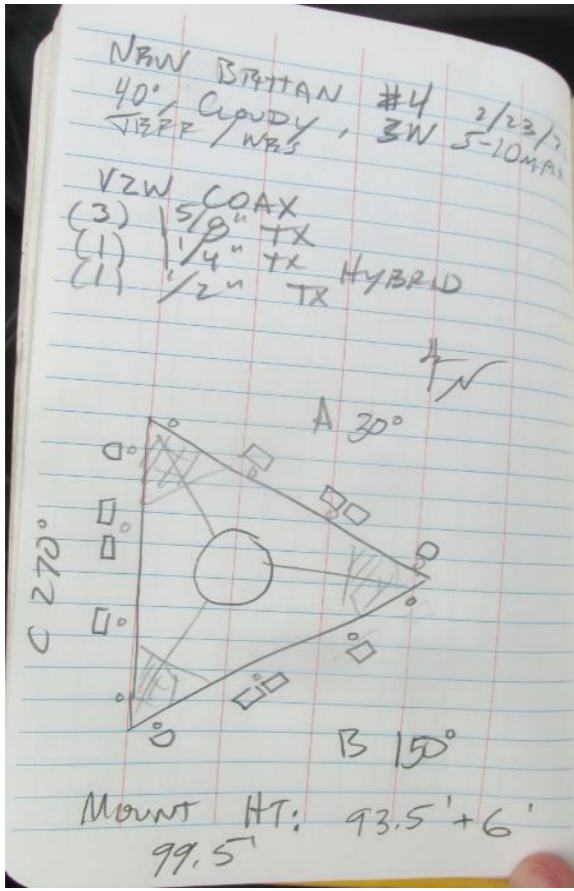 NEW BRITIAN #4 2/23/2
40° / CLOUDY, 3W 5-10MPH
JEFF / WES
VZW COAX
(3) 1 5/8" TX
(1) 1 1/4" TX HYBRID
(1) 1/2" TX
N
A 30°
C 270°
B 150°
MOUNT HT: 93.5' + 6'
99.5'